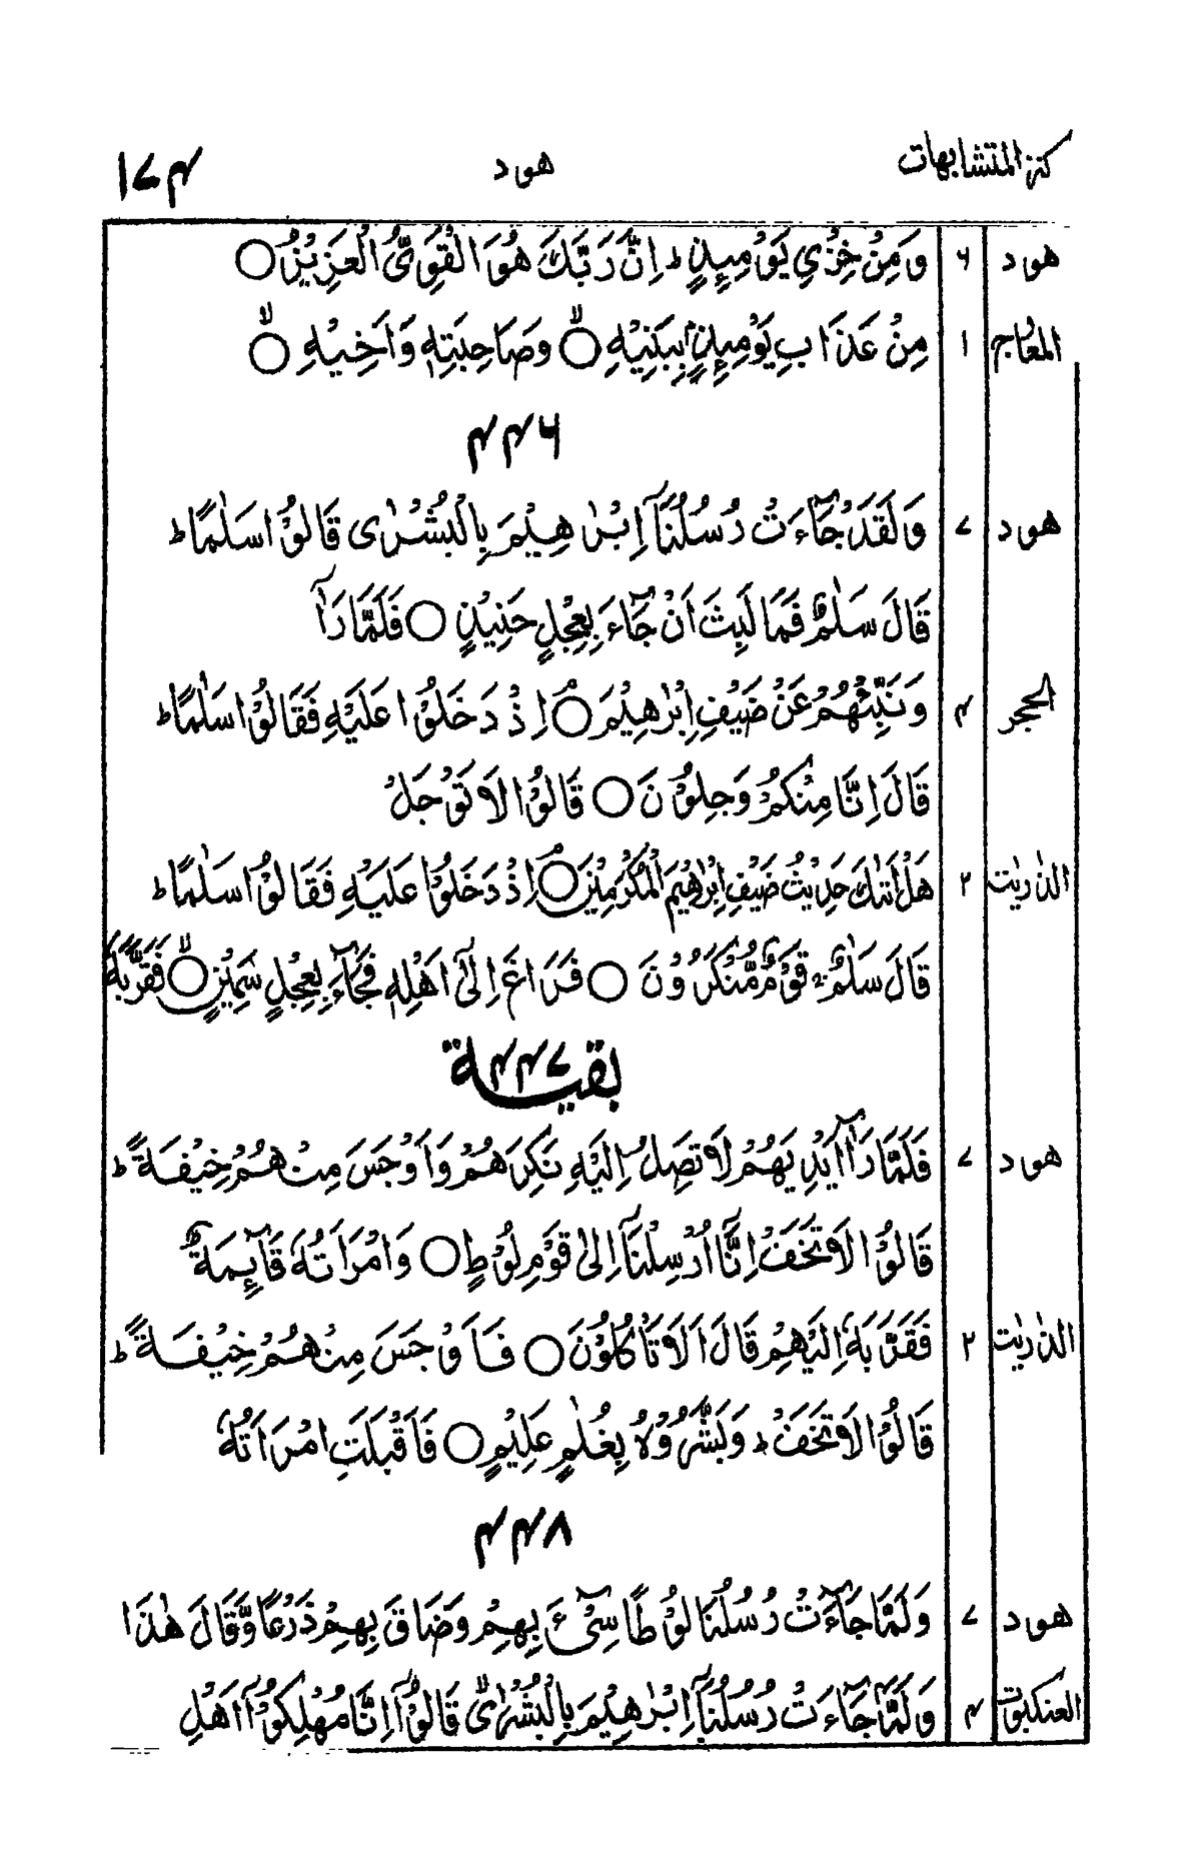 كنز المتشابهات هود ۱۷۴
هود ۶ وَمِنْ خِزْيِ يَوْمِئِذٍ ؕ اِنَّ رَبَّكَ هُوَ الْقَوِيُّ الْعَزِيْزُ ○
المعارج ۱ مِنْ عَذَابِ يَوْمِئِذٍۭ بِبَنِيْهِ ○ۙ وَصَاحِبَتِهٖ وَاَخِيْهِ ○ۙ
۴۴۶
هود ۷ وَلَقَدْ جَآءَتْ رُسُلُنَاۤ اِبْرٰهِيْمَ بِالْبُشْرٰى قَالُوْا سَلٰمًا ؕ
قَالَ سَلٰمٌ فَمَا لَبِثَ اَنْ جَآءَ بِعِجْلٍ حَنِيْذٍ ○ فَلَمَّا رَاٰۤ
الحجر ۴ وَنَبِّئْهُمْ عَنْ ضَيْفِ اِبْرٰهِيْمَ ○ۘ اِذْ دَخَلُوْا عَلَيْهِ فَقَالُوْا سَلٰمًا ؕ
قَالَ اِنَّا مِنْكُمْ وَجِلُوْنَ ○ قَالُوْا لَا تَوْجَلْ
الذٰريٰت ۲ هَلْ اَتٰىكَ حَدِيْثُ ضَيْفِ اِبْرٰهِيْمَ الْمُكْرَمِيْنَ ○ۘ اِذْ دَخَلُوْا عَلَيْهِ فَقَالُوْا سَلٰمًا ؕ
قَالَ سَلٰمٌ ۚ قَوْمٌ مُّنْكَرُوْنَ ○ فَرَاغَ اِلٰٓى اَهْلِهٖ فَجَآءَ بِعِجْلٍ سَمِيْنٍ ○ۙ فَقَرَّبَهٗ
بقية ۴۴۷
هود ۷ فَلَمَّا رَاٰۤ اَيْدِيَهُمْ لَا تَصِلُ اِلَيْهِ نَكِرَهُمْ وَاَوْجَسَ مِنْهُمْ خِيْفَةً ؕ
قَالُوْا لَا تَخَفْ اِنَّاۤ اُرْسِلْنَاۤ اِلٰى قَوْمِ لُوْطٍ ○ وَامْرَاَتُهٗ قَآئِمَةٌ
الذٰريٰت ۲ فَقَرَّبَهٗۤ اِلَيْهِمْ قَالَ اَلَا تَاْكُلُوْنَ ○ فَاَوْجَسَ مِنْهُمْ خِيْفَةً ؕ
قَالُوْا لَا تَخَفْ ؕ وَبَشَّرُوْهُ بِغُلٰمٍ عَلِيْمٍ ○ فَاَقْبَلَتِ امْرَاَتُهٗ
۴۴۸
هود ۷ وَلَمَّا جَآءَتْ رُسُلُنَا لُوْطًا سِيْٓءَ بِهِمْ وَضَاقَ بِهِمْ ذَرْعًا وَّقَالَ هٰذَا
العنكبوت ۴ وَلَمَّا جَآءَتْ رُسُلُنَاۤ اِبْرٰهِيْمَ بِالْبُشْرٰىۙ قَالُوْۤا اِنَّا مُهْلِكُوْۤا اَهْلِ